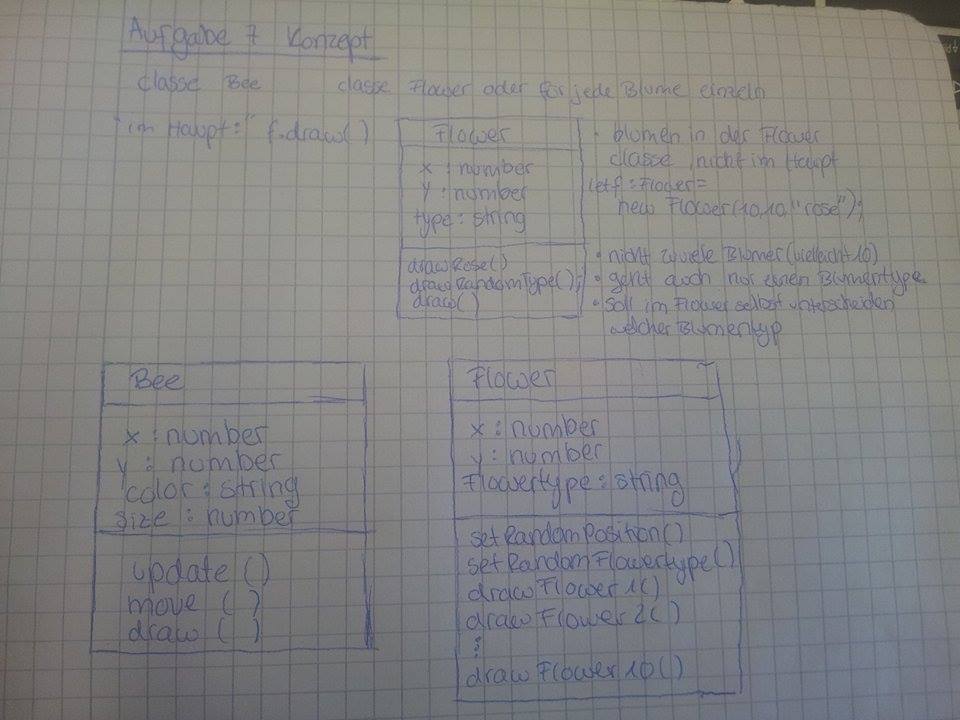 Aufgabe 7 Konzept
classe Bee classe Flower oder für jede Blume einzeln
"im Haupt:" f.draw()
Flower
x : number
y : number
type : string
drawRose()
drawRandomType();
draw()
• blumen in der Flower
classe, nicht im Haupt
let f : Flower =
new Flower(10,10,"rose");
• nicht zu viele Blumen (vielleicht 10)
• geht auch nur einen Blumentype
• Soll im Flower selbst unterscheiden
welcher Blumentyp
Bee
x : number
y : number
color : string
size : number
update ()
move ( )
draw ( )
Flower
x : number
y : number
Flowertype : string
setRandomPosition()
setRandomFlowertype()
drawFlower1()
drawFlower2()
⋮
drawFlower10()